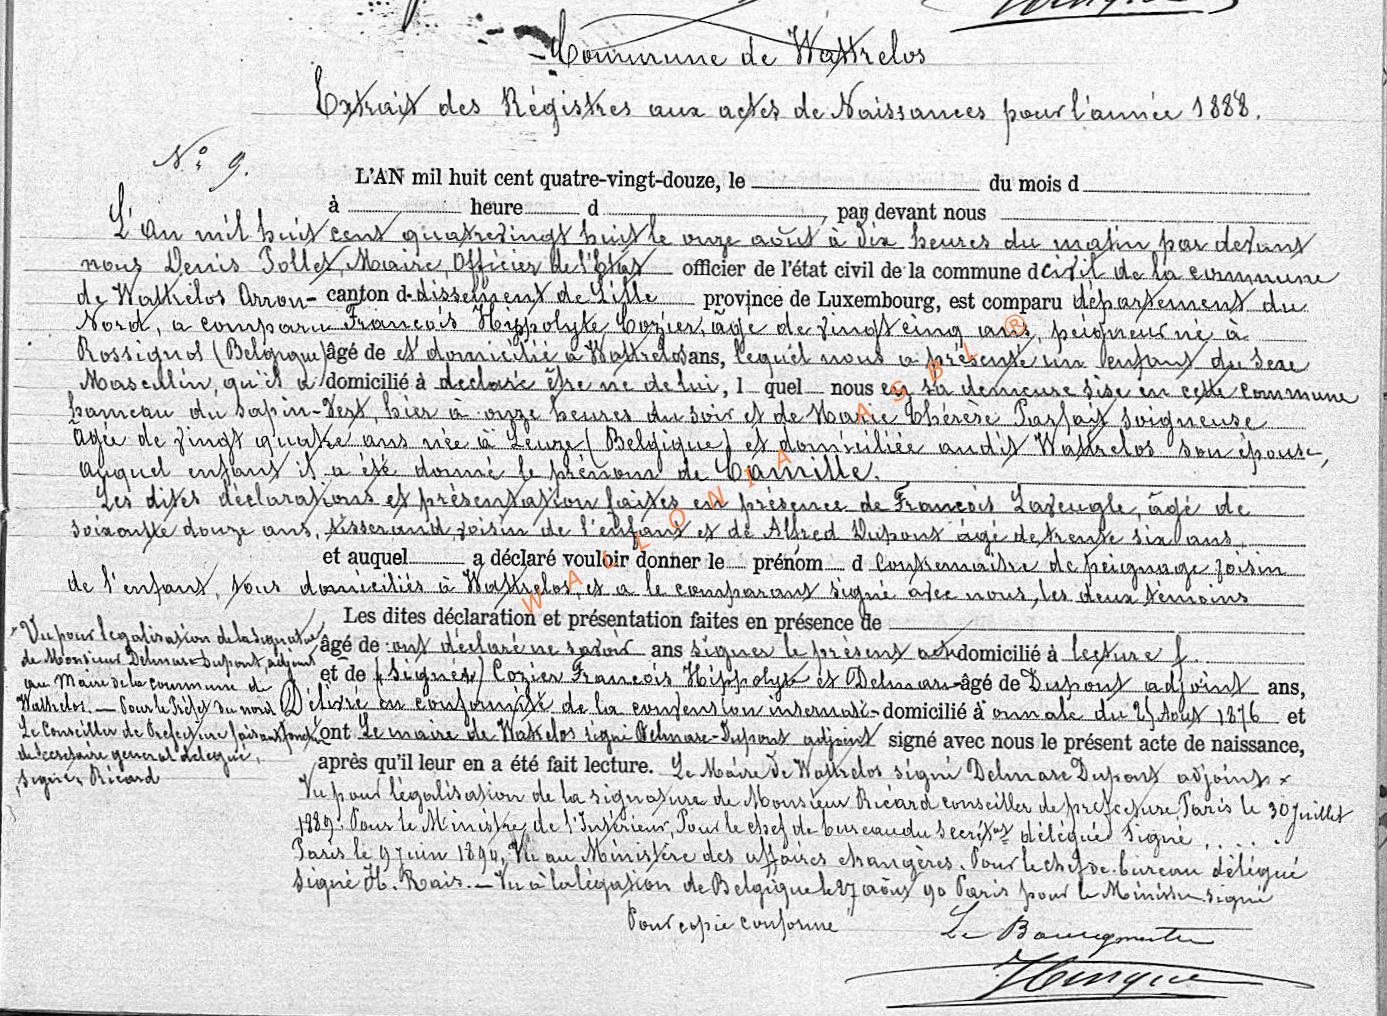 Commune de Wattrelos
Extrait des Régistres aux actes de Naissances pour l'année 1888.
N° 9.
L'AN mil huit cent quatre-vingt-douze, le du mois d
à heure d , par devant nous
L'an mil huit cent quatrevingt huit le onze août à dix heures du matin par devant
nous Denis Pollet, Maire, Officier de l'Etat officier de l'état civil de la commune d civil de la commune
de Wattrelos Arron- canton d dissement de Lille province de Luxembourg, est comparu département du
Nord, a comparu François Hippolyte Cozier, âgé de vingt cinq ans, peigneur né à
Rossignol (Belgique) âgé de et domicilié à Wattrelos ans, lequel nous a présenté un enfant du sexe
Masculin, qu'il a domicilié à declaré être né de lui, l quel nous en sa demeure sise en cette commune
hameau du Sapin-Vert, hier à onze heures du soir et de Marie Thérèse Parfait soigneuse
âgée de vingt quatre ans née à Leuze (Belgique) et domiciliée audit Wattrelos son épouse,
auquel enfant il a été donné le prénom de Camille.
Les dites déclarations et présentation faites en présence de François Laveugle, âgé de
soixante douze ans, tisserand voisin de l'enfant et de Alfred Dupont âgé de trente six ans
et auquel a déclaré vouloir donner le prénom d contremaître de peignage voisin
de l'enfant, tous domiciliés à Wattrelos, et a le comparant signé avec nous, les deux témoins
Les dites déclaration et présentation faites en présence de
âgé de ont déclaré ne savoir ans signer le présent acte domicilié à lecture f
et de (Signés) Cozier François Hippolyte et Delmare- âgé de Dupont adjoint ans,
Délivré en conformité de la convention internati- domicilié à onnale du 25 Aout 1876 et
ont Le maire de Wattrelos signé Delmare-Dupont adjoint signé avec nous le présent acte de naissance,
après qu'il leur en a été fait lecture. Le Maire de Wattrelos signé Delmare Dupont adjoint
Vu pour légalisation de la signature
de Monsieur Delmare-Dupont adjoint
au Maire de la commune de
Wattrelos. — Pour le Préfet du nord
Le Conseiller de Préfecture faisant fonct
de Secretaire general délégué,
signé, Ricard
Vu pour légalisation de la signature de Monsieur Ricard conseiller de préfecture, Paris le 30 Juillet
1889. Pour le Ministre de l'Intérieur, Pour le chef de bureau du Secrét délégué Signé . . . . .
Paris le 9 juin 1890, Vu au Ministère des affaires etrangères. Pour le chef de bureau délégué
Signé H. Rais. — Vu à la légation de Belgique le 27 août 90 Paris pour le Ministre signé
Pour copie conforme
Le Bourgmestre
WALLONIA ASBL ®